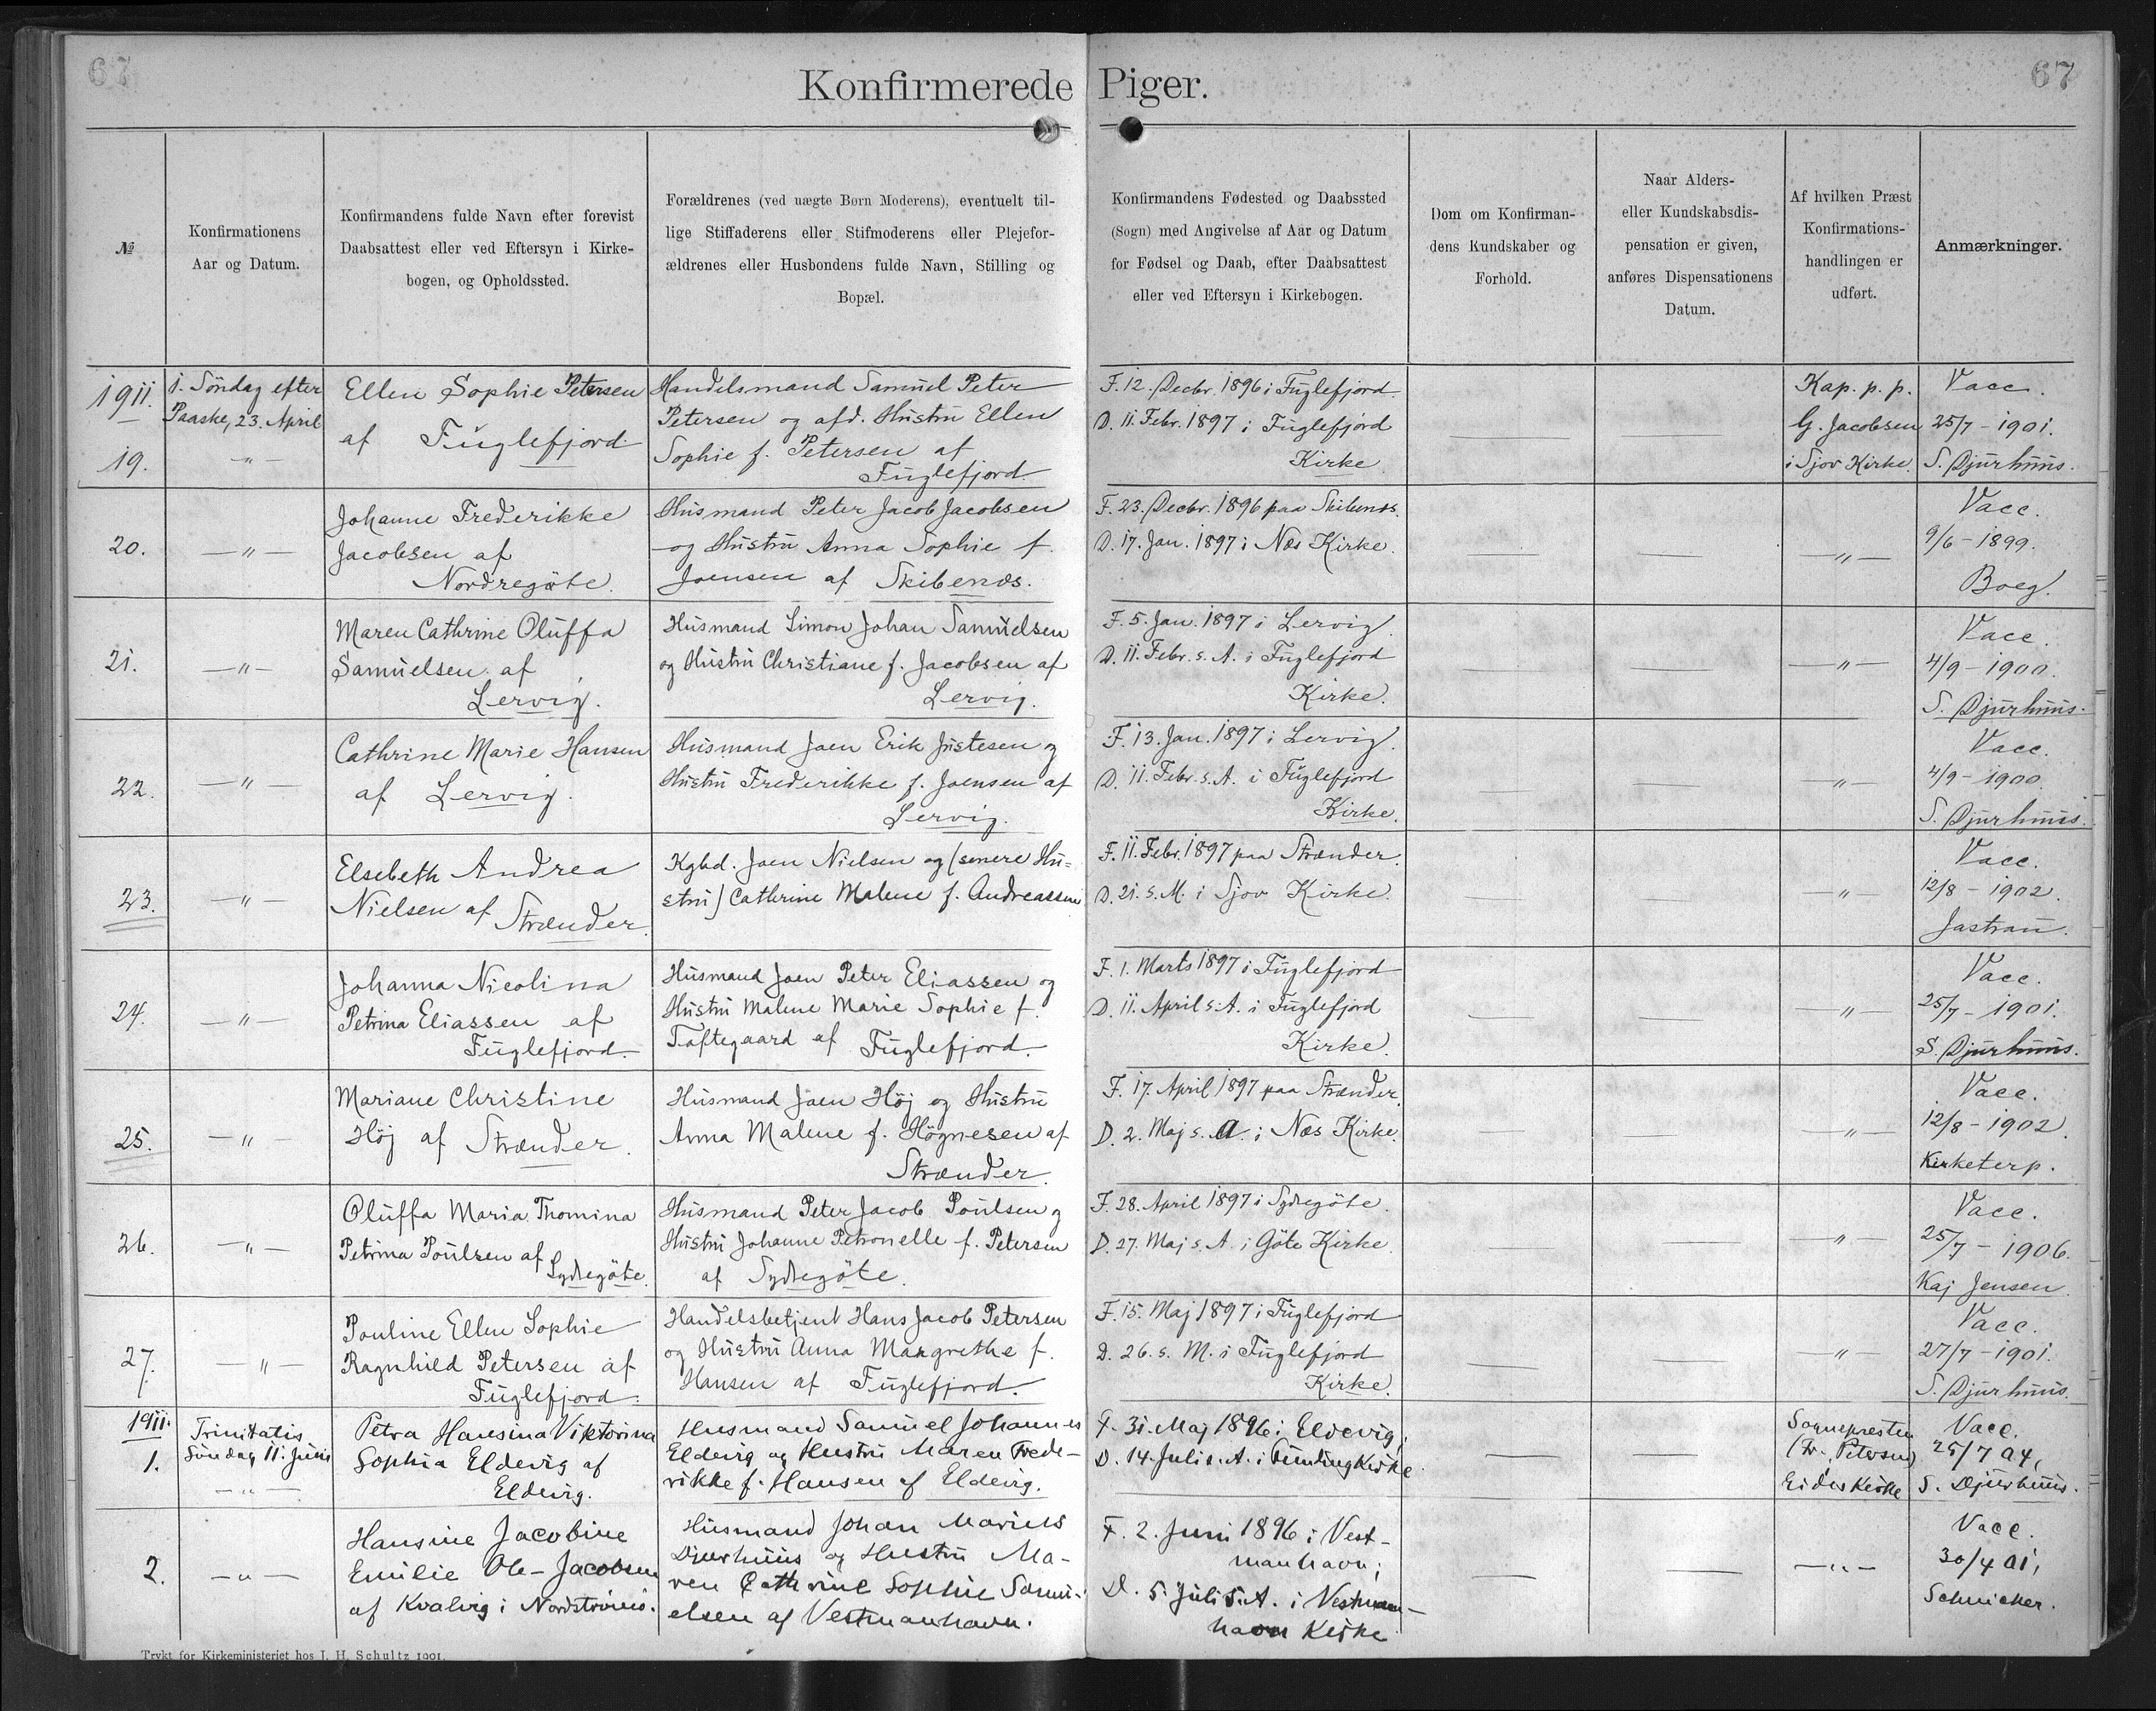 67
67
Konfirmerede Piger.
№
Konfirmationens
Aar og Datum.
Konfirmandens fulde Navn efter forevist
Daabsattest eller ved Eftersyn i Kirke-
bogen, og Opholdssted.
Forældrenes (ved uægte Børn Moderens), eventuelt til-
lige Stiffaderens eller Stifmoderens eller Plejefor-
ældrenes eller Husbondens fulde Navn, Stilling og
Bopæl.
Konfirmandens Fødested og Daabssted
(Sogn) med Angivelse af Aar og Datum
for Fødsel og Daab, efter Daabsattest
eller ved Eftersyn i Kirkebogen.
Dom om Konfirman-
dens Kundskaber og
Forhold.
Naar Alders-
eller Kundskabsdis-
pensation er given,
anføres Dispensationens
Datum.
Af hvilken Præst
Konfirmations-
handlingen er
udført.
Anmærkninger.
1911.
19.
1. Søndag efter
Paaske, 23. April
—„—
Ellen Sophie Petersen
af Fuglefjord.
Handelsmand Samuel Peter
Petersen og afd. Hustru Ellen
Sophie f. Petersen af
Fuglefjord.
F. 12. Decbr. 1896 i Fuglefjord.
D. 11. Febr. 1897 i Fuglefjord
Kirke
—
—
Kap. p. p.
G. Jacobsen
i Sjov Kirke.
Vacc.
25/7 - 1901.
S. Djurhuus.
20.
—„—
Johanne Frederikke
Jacobsen af
Nordregöte.
Husmand Peter Jacob Jacobsen
og Hustru Anna Sophie f.
Joensen af Skibenæs.
F. 23. Decbr. 1896 paa Skibenæs.
D. 17. Jan. 1897 i Næs Kirke.
—
—
—„—
Vacc.
9/6 - 1899.
Boeg.
21.
—„—
Maren Cathrine Oluffa
Samuelsen af
Lervig.
Husmand Simon Johan Samuelsen
og Hustru Christiane f. Jacobsen af
Lervig.
F. 5. Jan. 1897 i Lervig.
D. 11. Febr. s. A. i Fuglefjord
Kirke.
—
—
—„—
Vacc.
4/9 - 1900.
S. Djurhuus.
22.
—„—
Cathrine Marie Hansen
af Lervig.
Husmand Joen Erik Justesen og
Hustru Frederikke f. Joensen af
Lervig.
F. 13. Jan. 1897 i Lervig.
D. 11. Febr. s. A. i Fuglefjord
Kirke.
—
—
—„—
Vacc.
4/9 - 1900.
S. Djurhuus.
23.
—„—
Elsebeth Andrea
Nielsen af Strænder.
Kgbd. Joen Nielsen og (senere Hu=
stru) Cathrine Malene f. Andreassen
F. 11. Febr. 1897 paa Strænder.
D. 21. s. M. i Sjov Kirke.
—
—
—„—
Vacc.
12/8 - 1902.
Jastrau.
24.
—„—
Johanna Nicolina
Petrina Eliassen af
Fuglefjord.
Husmand Joen Peter Eliassen og
Hustru Malene Marie Sophie f.
Toftegaard af Fuglefjord.
F. 1. Marts 1897 i Fuglefjord
D. 11. April s. A. i Fuglefjord
Kirke.
—
—
—„—
Vacc.
25/7 - 1901.
S. Djurhuus.
25.
—„—
Mariane Christine
Höj af Strænder.
Husmand Joen Höj og Hustru
Anna Malene f. Högnesen af
Strænder.
F. 17. April 1897 paa Strænder.
D. 2. Maj s. A. i Næs Kirke.
—
—
—„—
Vacc.
12/8 - 1902.
Kirketerp.
26.
—„—
Oluffa Maria Thomina
Petrina Poulsen af
Sydregöte.
Husmand Peter Jacob Poulsen og
Hustru Johanne Petronelle f. Petersen
af Sydregöte.
F. 28. April 1897 i Sydregöte.
D. 27. Maj s. A. i Göte Kirke.
—
—
—„—
Vacc.
25/7 - 1906.
Kaj Jensen
27.
—„—
Pouline Ellen Sophie
Ragnhild Petersen af
Fuglefjord.
Handelsbetjent Hans Jacob Petersen
og Hustru Anna Margrethe f.
Hansen af Fuglefjord.
F. 15. Maj 1897 i Fuglefjord
D. 26. s. M. i Fuglefjord
Kirke.
—
—
—„—
Vacc.
27/7 - 1901.
S. Djurhuus.
1911.
1.
Trinitatis
Søndag 11. Juni
—„—
Petra Hansina Viktorina
Sophia Eldevig af
Eldevig.
Husmand Samuel Johannes
Eldevig og Hustru Maren Frede-
rikke f. Hansen af Eldevig.
F. 31. Maj 1896 i Eldevig;
D. 14. Juli s. A. i Funding Kirke.
—
—
Sognepresten
Petersen
Eides Kirke
Vacc.
25/7 04,
S. Djurhuus.
2.
—„—
Hansine Jacobine
Emilie Ole-Jacobsen
af Kvalvig i Nordströmö.
Husmand Johan Marius
Djurhuus og Hustru Ma-
ren Cathrine Sophie Samu-
elsen af Vestmanhavn.
F. 2. Juni 1896 i Vest-
manhavn;
D. 5. Juli s. A. i Vestman-
havn Kirke
—
—
—„—
Vacc.
30/4 01,
Schuicker.
Trykt for Kirkeministeriet hos J. H. Schultz 1901.